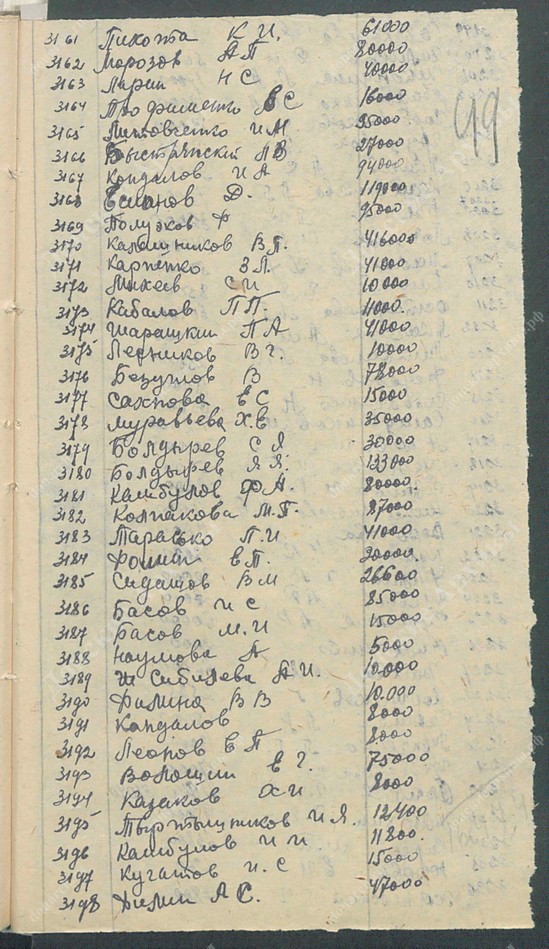 49
3161 Пикожа К И. 61000
3162 Морозов А П 80000
3163 Ларин Н С 40000
3164 Трофименко В С 16000
3165 Литовченко И М 35000
3166 Быстрянский П В 27000
3167 Кондалов И А 94000
3168 Д. 119000
3169 Полузков Ф 95000
3170 Калашников В П. 416000
3171 Карпенко З Л. 41000
3172 Михеев С И 10000
3173 Кабалов П П. 11000.
3174 Шарашкин П А 41000
3175 Ледников В Г. 10000
3176 Безуглов В 78000
3177 Сахнова Е С 15000
3178 Муравьева Х. Е 35000
3179 Болдырев С Я 30000
3180 Болдырев Я Я. 133000
3181 Камбулов Ф А. 80000.
3182 Колпакова М. П. 87000
3183 Тарасько П. И 41000
3184 Фомин Е П. 30000.
3185 Сидашов В М 26600
3186 Басов И С 85000
3187 Басов М. И 15000
3188 Наумова А 5000
3189 А И. 10.000
3190 Фалина В В 10.000
3191 Кандалов 8000
3192 Леонов Е П 8000
3193 Волошин Е Г. 75000
3194 Казаков Х И 8000
3195 И Я. 12400
3196 Камбулов И И 11800.
3197 Кугатов И. С 15000
3198 Дилин А С. 47000